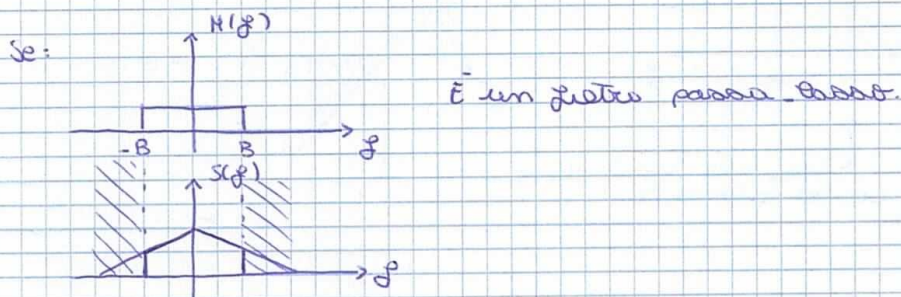 H(f)
Se:
È un filtro passa-basso.
-B B f
S(f)
f